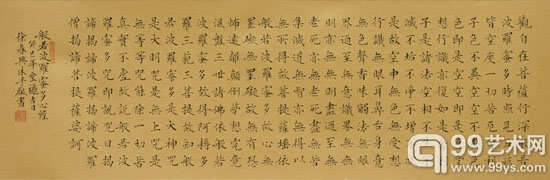 觀自在菩薩行深般若
波羅蜜多時照見五蘊
皆空度一切苦厄舍利
子色不異空空不異色
色即是空空即是色受
想行識亦復如是舍利
子是諸法空相不生不
滅不垢不淨不增不減
是故空中無色無受想
行識無眼耳鼻舌身意
無色聲香味觸法無眼
界乃至無意識界無無
明亦無無明盡乃至無
老死亦無老死盡無苦
集滅道無智亦無得以
無所得故菩提薩埵依
般若波羅蜜多故心無
罣礙無罣礙故無有恐
怖遠離顛倒夢想究竟
涅盤三世諸佛依般若
波羅蜜多故得阿耨多
羅三藐三菩提故知般
若波羅蜜多是大神咒
是大明咒是無上咒是
無等等咒能除一切苦
真實不虛故說般若波
羅蜜多咒即說咒曰揭
諦揭諦波羅揭諦波羅
僧揭諦菩提薩婆訶
般若波羅蜜多心經
癸巳年吉日
徐春興沐手敬書
99艺术网
www.99ys.com